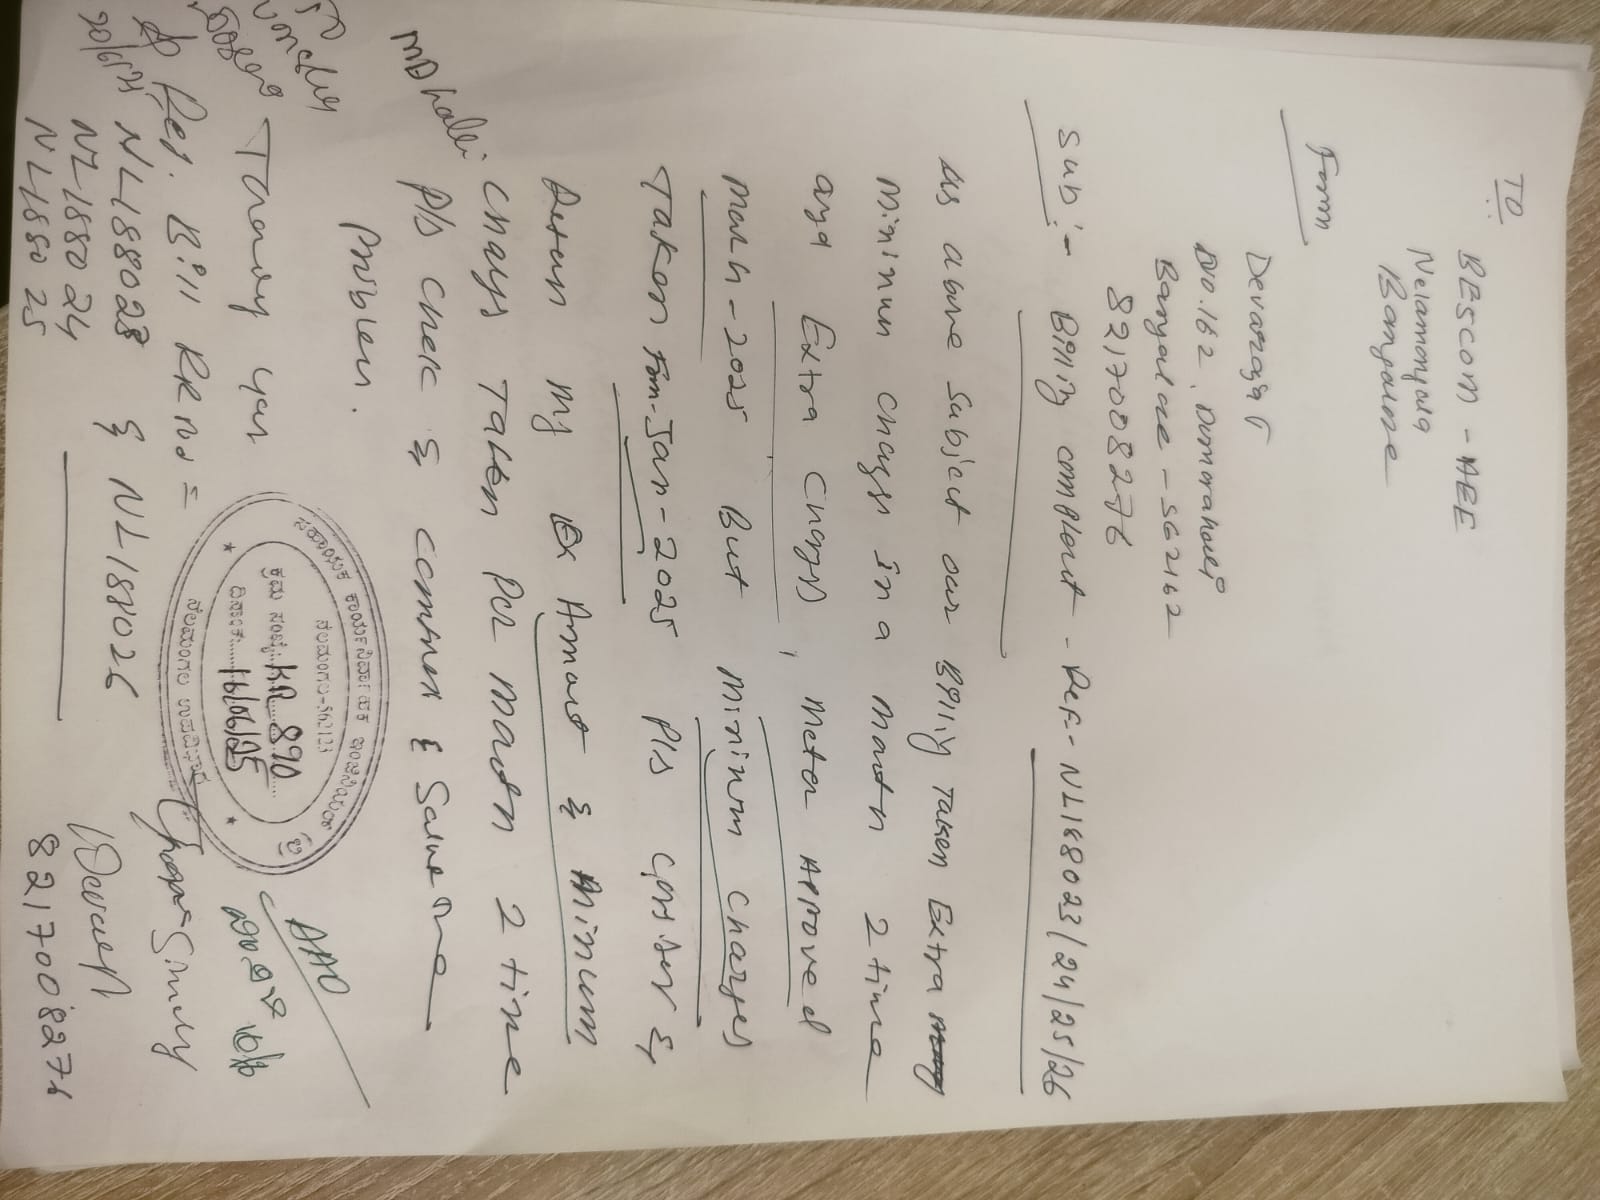 TO
BESCOM - AEE
Nelamangala
Bangalore
From
Devaraja
NO.162, Dommarahalli
Bangalore - 562162
8217008276
Sub:- Billing complaint - Ref- NL188023/24/25/26
As above subject our Billing Taken Extra
minimum charges in a month 2 time
and Extra charges, meter Approved
march-2025 But minimum charges
Taken From-Jan-2025 Pls Consider &
Return my Amount & Minimum
charges Taken Per month 2 time
Pls check & confirm & Solve the
Problem.
Thanking you
Ref. Bill RR No =
NL188023 & NL188026
NL188024
NL188025
Yours Sincerely
8217008276
MD halli
AAO
ನೆಲಮಂಗಲ-562123
ಕ್ರಮ ಸಂಖ್ಯೆ: KR 890
ದಿನಾಂಕ: 16/06/25
ನೆಲಮಂಗಲ ಉಪವಿಭಾಗ